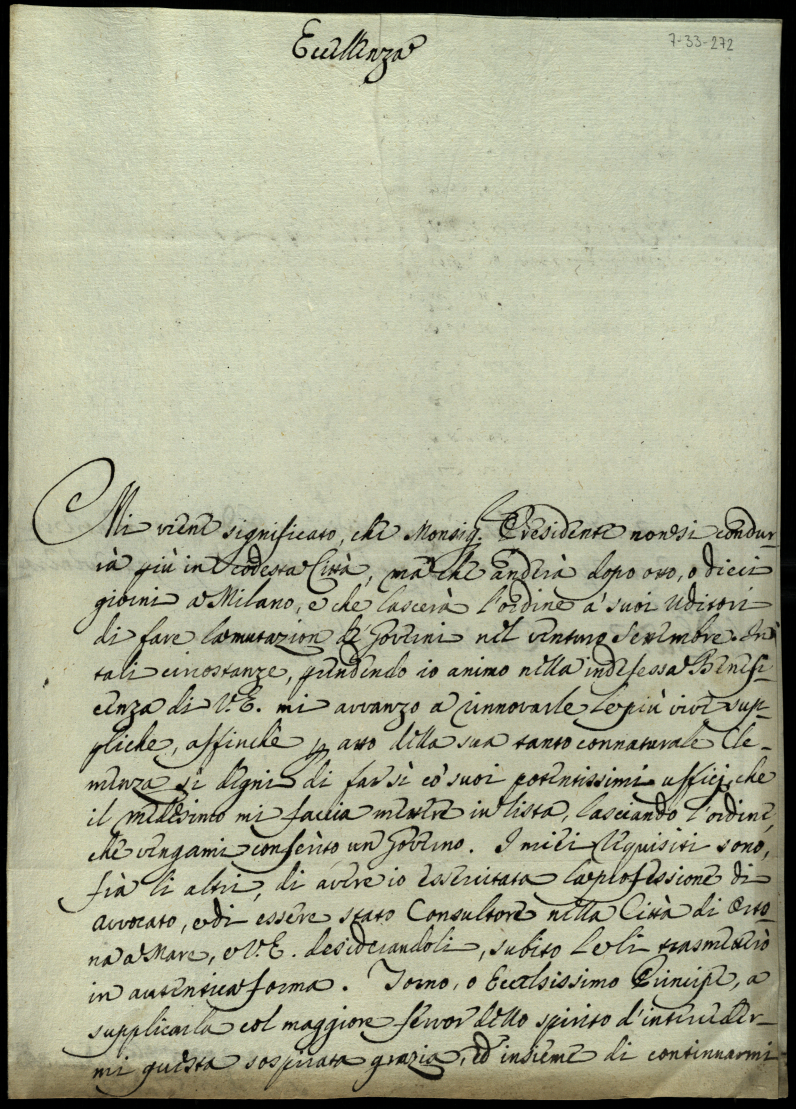 Eccellenza
7-33-272
Mi viene significato, che Monsig.r Presidente non si condur-
rà più in codesta Città, mà che anderà dopo otto, o dieci
giorni a Milano, e che lascerà l'ordine a' suoi Uditori
di fare la mutazion de' Governi nel venturo Settembre. In
tali circostanze, prendendo io animo nella indefessa Benefi-
cenza di V.E. mi avvanzo a rinnovarle le più vive sup-
pliche, affinchè p atto della sua tanto connaturale Cle-
menza si degni di far sì co' suoi potentissimi ufficj, che
il medesimo mi faccia mettere in lista, lasciando l'ordine,
che vengami conferito un Governo. I miei requisiti sono,
frà li altri, di avere io essercitata la professione di
Avvocato, e di essere stato Consultore nella Città di Orto-
na a Mare, e V.E. desiderandoli, subito Le li trasmetterò
in autentica forma. Torno, o Eccelsissimo Principe, a
supplicarla col maggiore fervor dello spirito d'interceder-
mi questa sospirata grazia, ed insieme di continuarmi